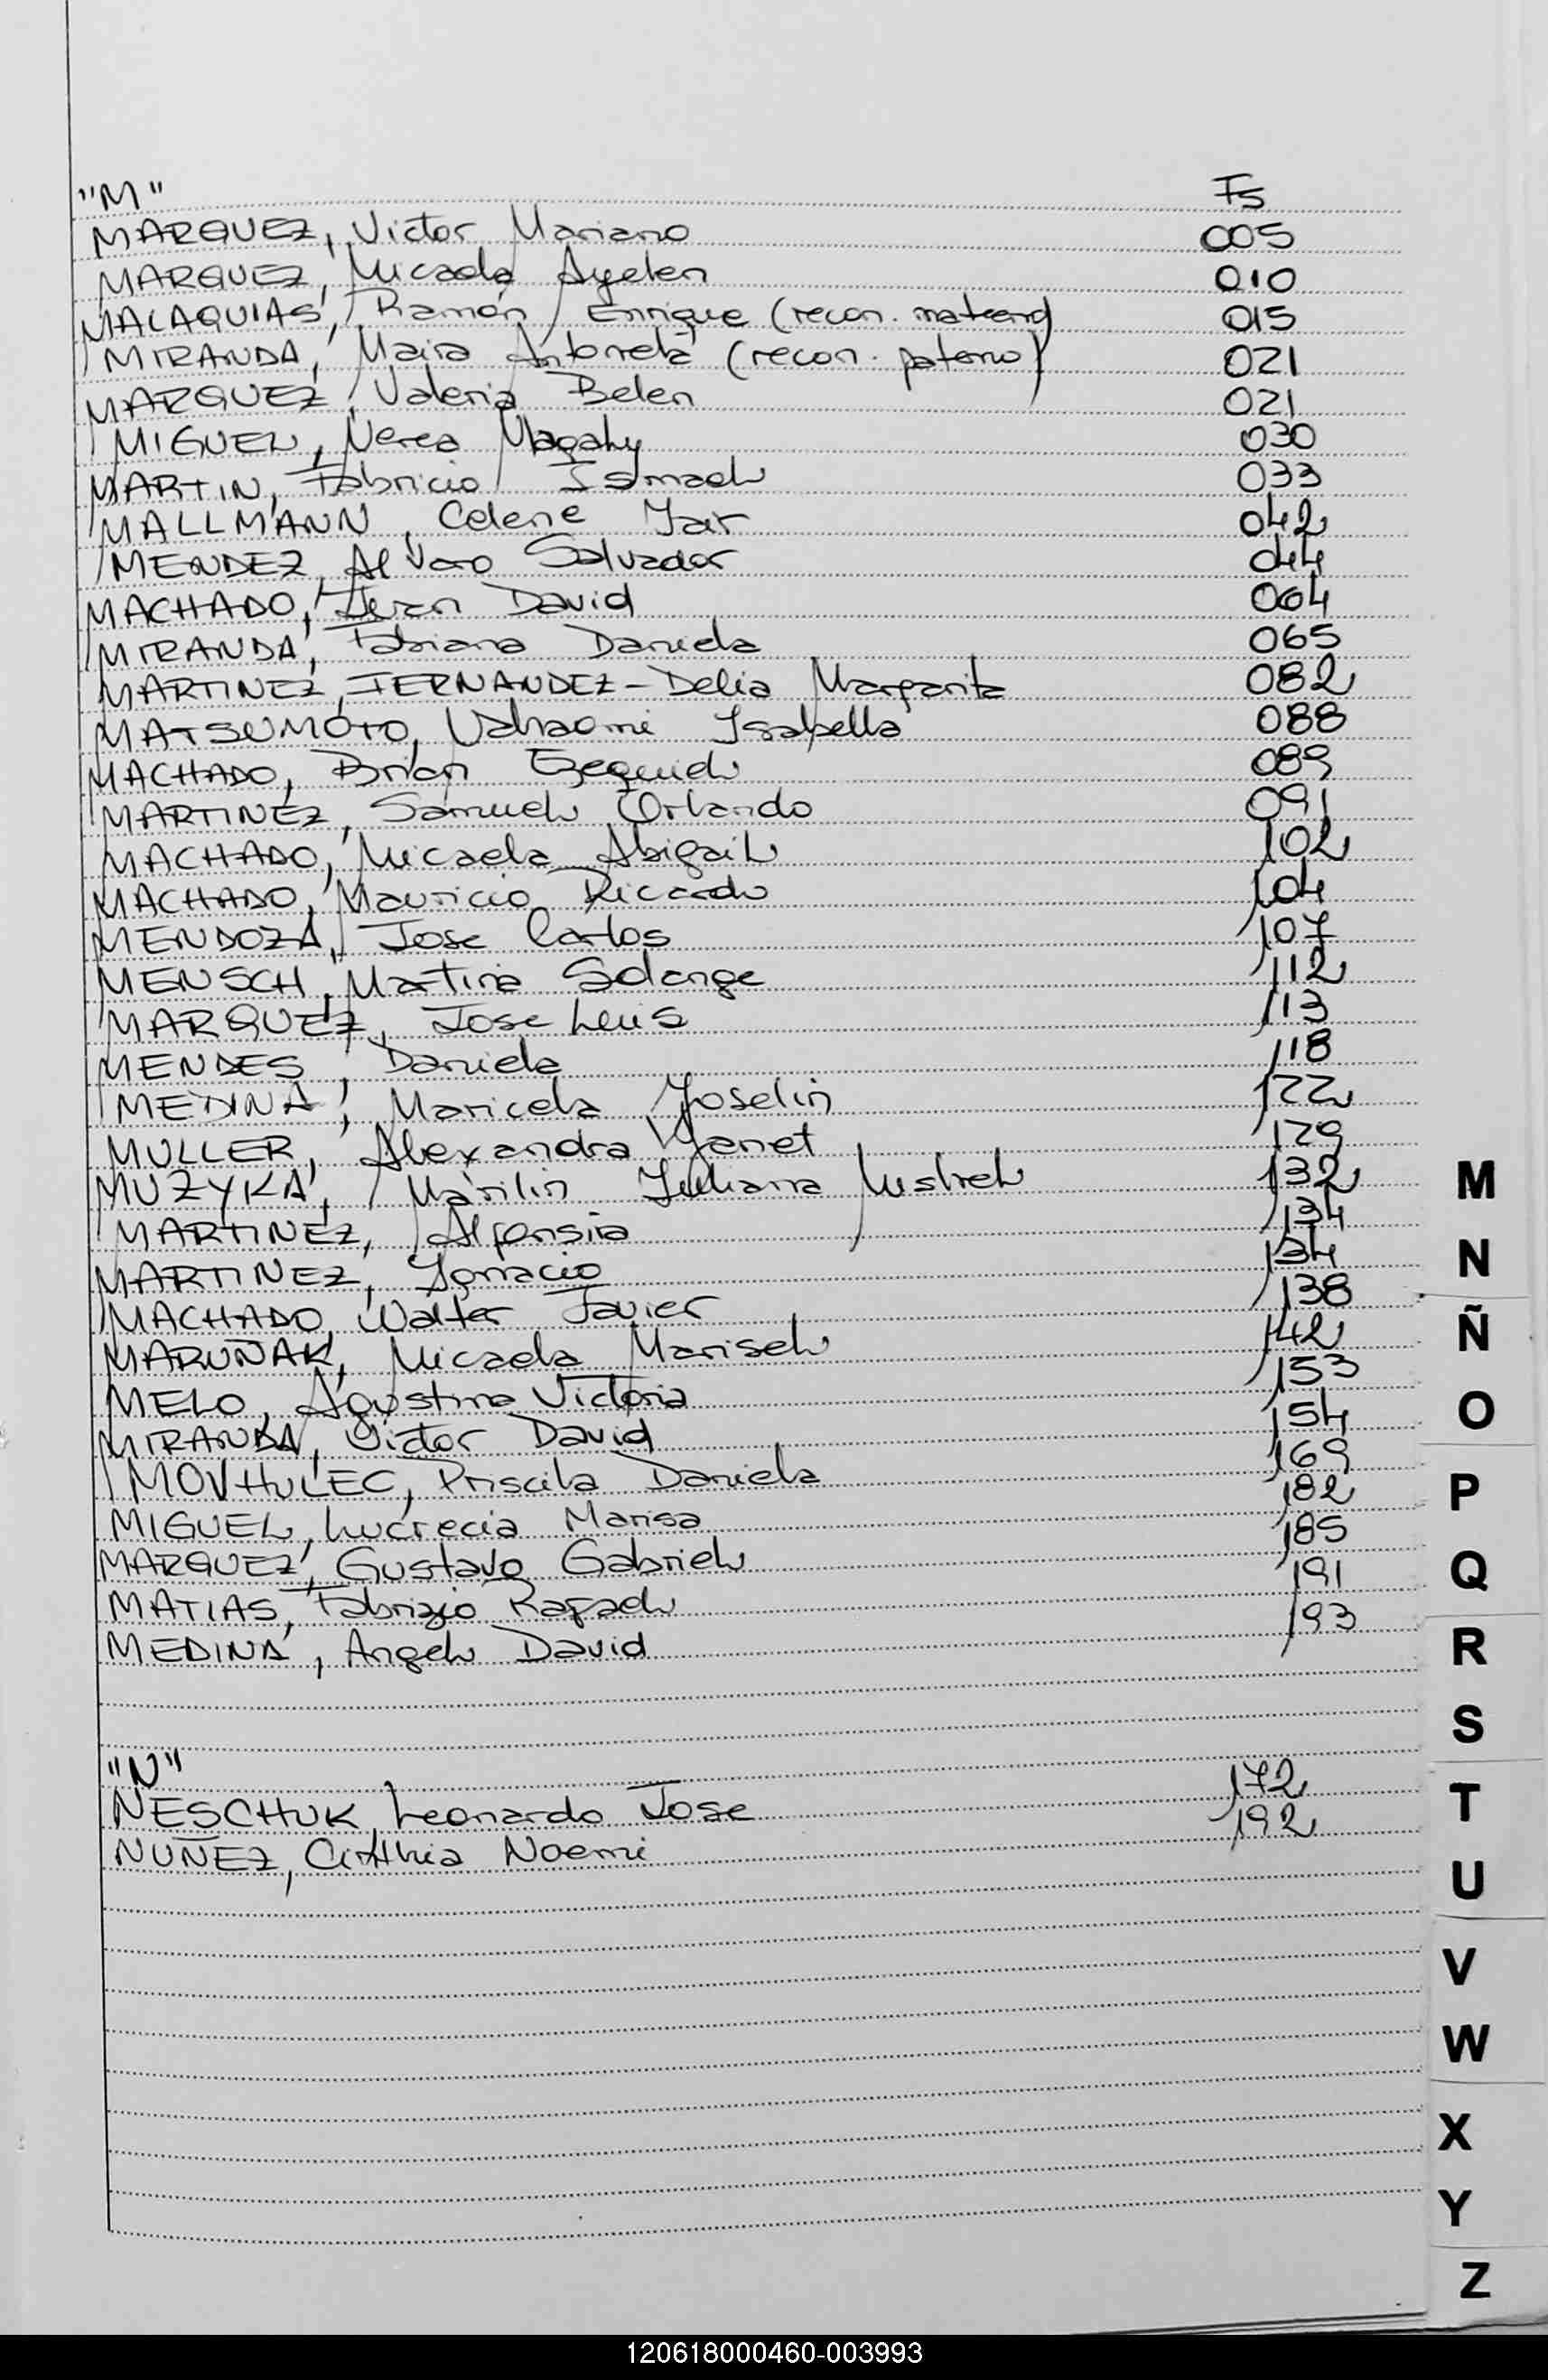 "M" Fs
MARQUEZ, Victor Mariano 005
MARQUEZ, Micaela Ayelen 010
MALAQUIAS, Ramón Enrique (recon. materno) 015
MIRANDA, Maira Antonela (recon. paterno) 021
MARQUEZ, Valeria Belen 021
MIGUEL, Nerea Magaly 030
MARTIN, Fabricio Ismael 033
MALLMANN, Celene Jair 042
MENDEZ, Alvaro Salvador 044
MACHADO, Ivan David 064
MIRANDA, Fabiana Daniela 065
MARTINEZ, FERNANDEZ - Delia Margarita 082
MATSUMOTO, Isabella 088
MACHADO, Brian Ezequiel 089
MARTINEZ, Samuel Orlando 091
MACHADO, Micaela Abigail 102
MACHADO, Mauricio Ricardo 104
MENDOZA, Jose Carlos 107
MENSCH, Martina Solange 112
MARQUEZ, Jose Luis 113
MENDES, Daniela 118
MEDINA, Maricela Yoselin 122
MULLER, Alexandra Yanet 129
MUZYKA, Marilin Juliana Mistrel 132
MARTINEZ, Alfonsina 134
MARTINEZ, Ignacio 134
MACHADO, Walter Javier 138
MARUÑAK, Micaela Marisel 142
MELO, Agustina Victoria 153
MIRANDA, Victor David 154
MOVHULEC, Priscila Daniela 169
MIGUEL, Lucrecia Marisa 182
MARQUEZ, Gustavo Gabriel 185
MATIAS, Fabrizio Rafael 191
MEDINA, Angel David 193
"N"
NESCHUK, Leonardo Jose 172
NUÑEZ, Cinthia Noemi 192
M
N
Ñ
O
P
Q
R
S
T
U
V
W
X
Y
Z
120618000460-003993